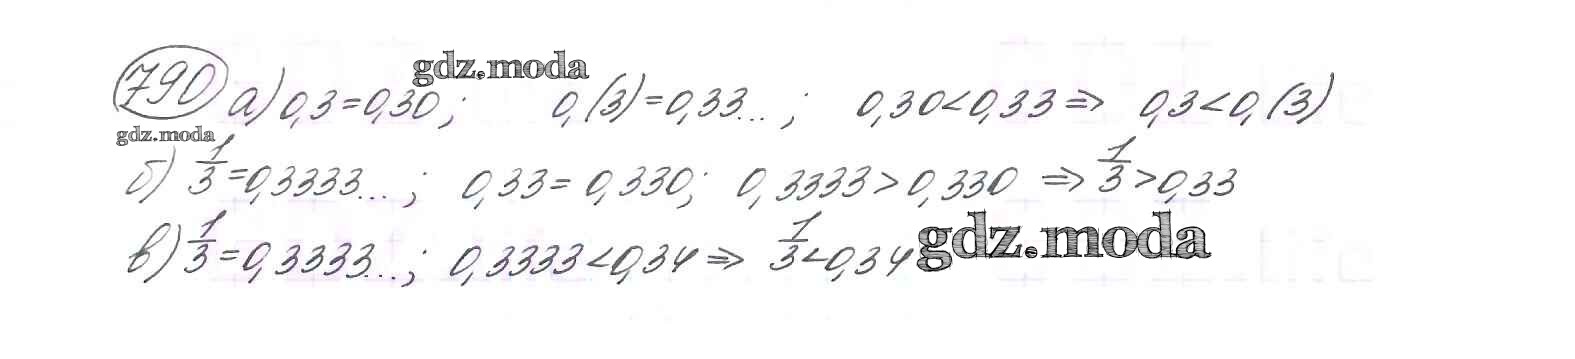 790 а) 0,3=0,30; 0,(3)=0,33...; 0,30<0,33 ⇒ 0,3<0,(3)
gdz.moda
gdz.moda
б) 1/3=0,3333...; 0,33=0,330; 0,3333>0,330 ⇒ 1/3>0,33
в) 1/3=0,3333...; 0,3333<0,34 ⇒ 1/3<0,34
gdz.moda